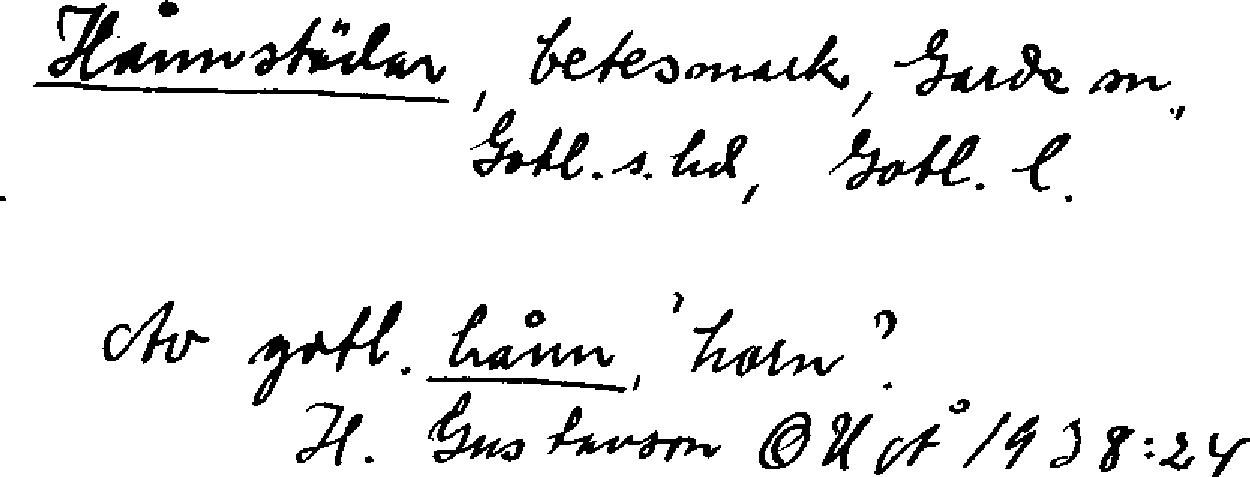 Hånnstädar, betesmark, Garde sn,
Gotl. s. hd, Gotl. l.
Av gotl. hånn, 'horn'.
H. Gustavson OUÅ 1938:24